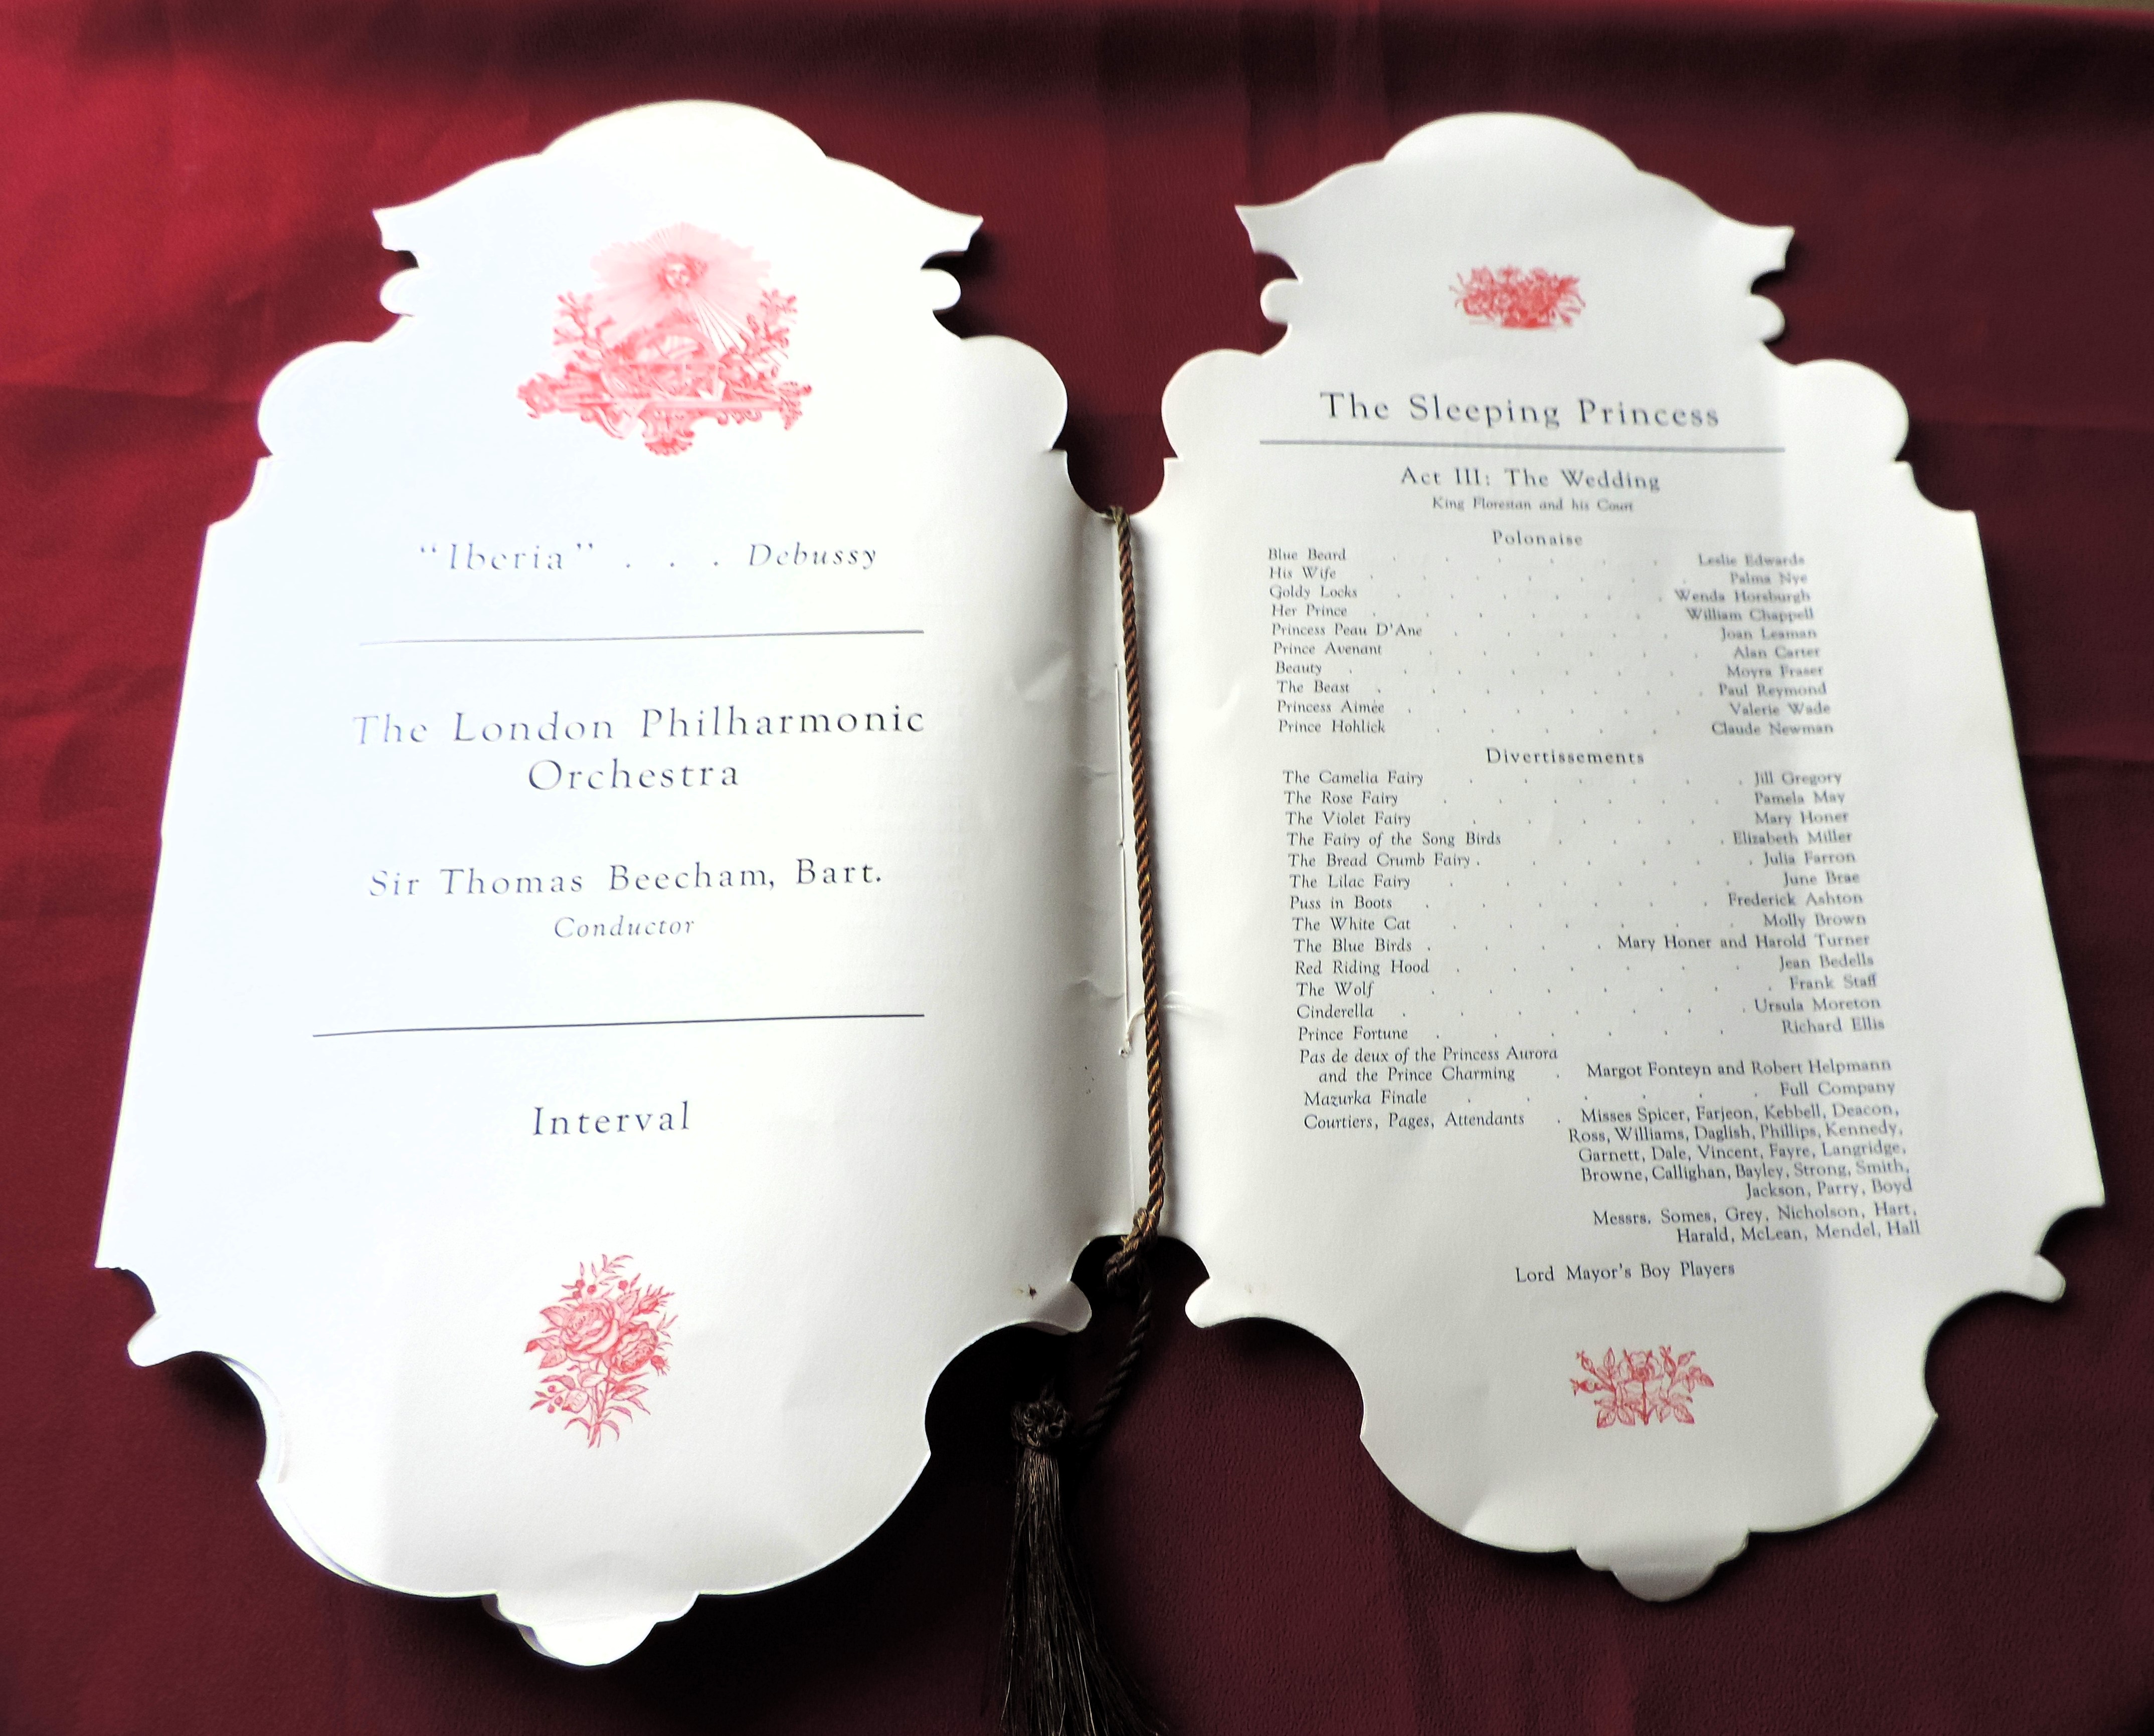 “Iberia” . . . Debussy
The London Philharmonic
Orchestra
Sir Thomas Beecham, Bart.
Conductor
Interval
The Sleeping Princess
Act III: The Wedding
King Florestan and his Court
Polonaise
Blue Beard . . . . . . Leslie Edwards
His Wife . . . . . . Palma Nye
Goldy Locks . . . . . . Wenda Horsburgh
Her Prince . . . . . . William Chappell
Princess Peau D'Ane . . . . . Joan Leaman
Prince Avenant . . . . . . Alan Carter
Beauty . . . . . . . Moyra Fraser
The Beast . . . . . . . Paul Reymond
Princess Aimée . . . . . . Valerie Wade
Prince Hohlick . . . . . Claude Newman
Divertissements
The Camelia Fairy . . . . . . Jill Gregory
The Rose Fairy . . . . . Pamela May
The Violet Fairy . . . . . Mary Honer
The Fairy of the Song Birds . . . . Elizabeth Miller
The Bread Crumb Fairy . . . . . . Julia Farron
The Lilac Fairy . . . . . . June Brae
Puss in Boots . . . . . . Frederick Ashton
The White Cat . . . . . . Molly Brown
The Blue Birds . . . . Mary Honer and Harold Turner
Red Riding Hood . . . . . . Jean Bedells
The Wolf . . . . . . Frank Staff
Cinderella . . . . . . . Ursula Moreton
Prince Fortune . . . . . . Richard Ellis
Pas de deux of the Princess Aurora
and the Prince Charming . Margot Fonteyn and Robert Helpmann
Mazurka Finale . . . . . Full Company
Courtiers, Pages, Attendants . Misses Spicer, Farjeon, Kebbell, Deacon,
Ross, Williams, Daglish, Phillips, Kennedy,
Garnett, Dale, Vincent, Fayre, Langridge,
Browne, Callighan, Bayley, Strong, Smith,
Jackson, Parry, Boyd
Messrs. Somes, Grey, Nicholson, Hart,
Harald, McLean, Mendel, Hall
Lord Mayor's Boy Players